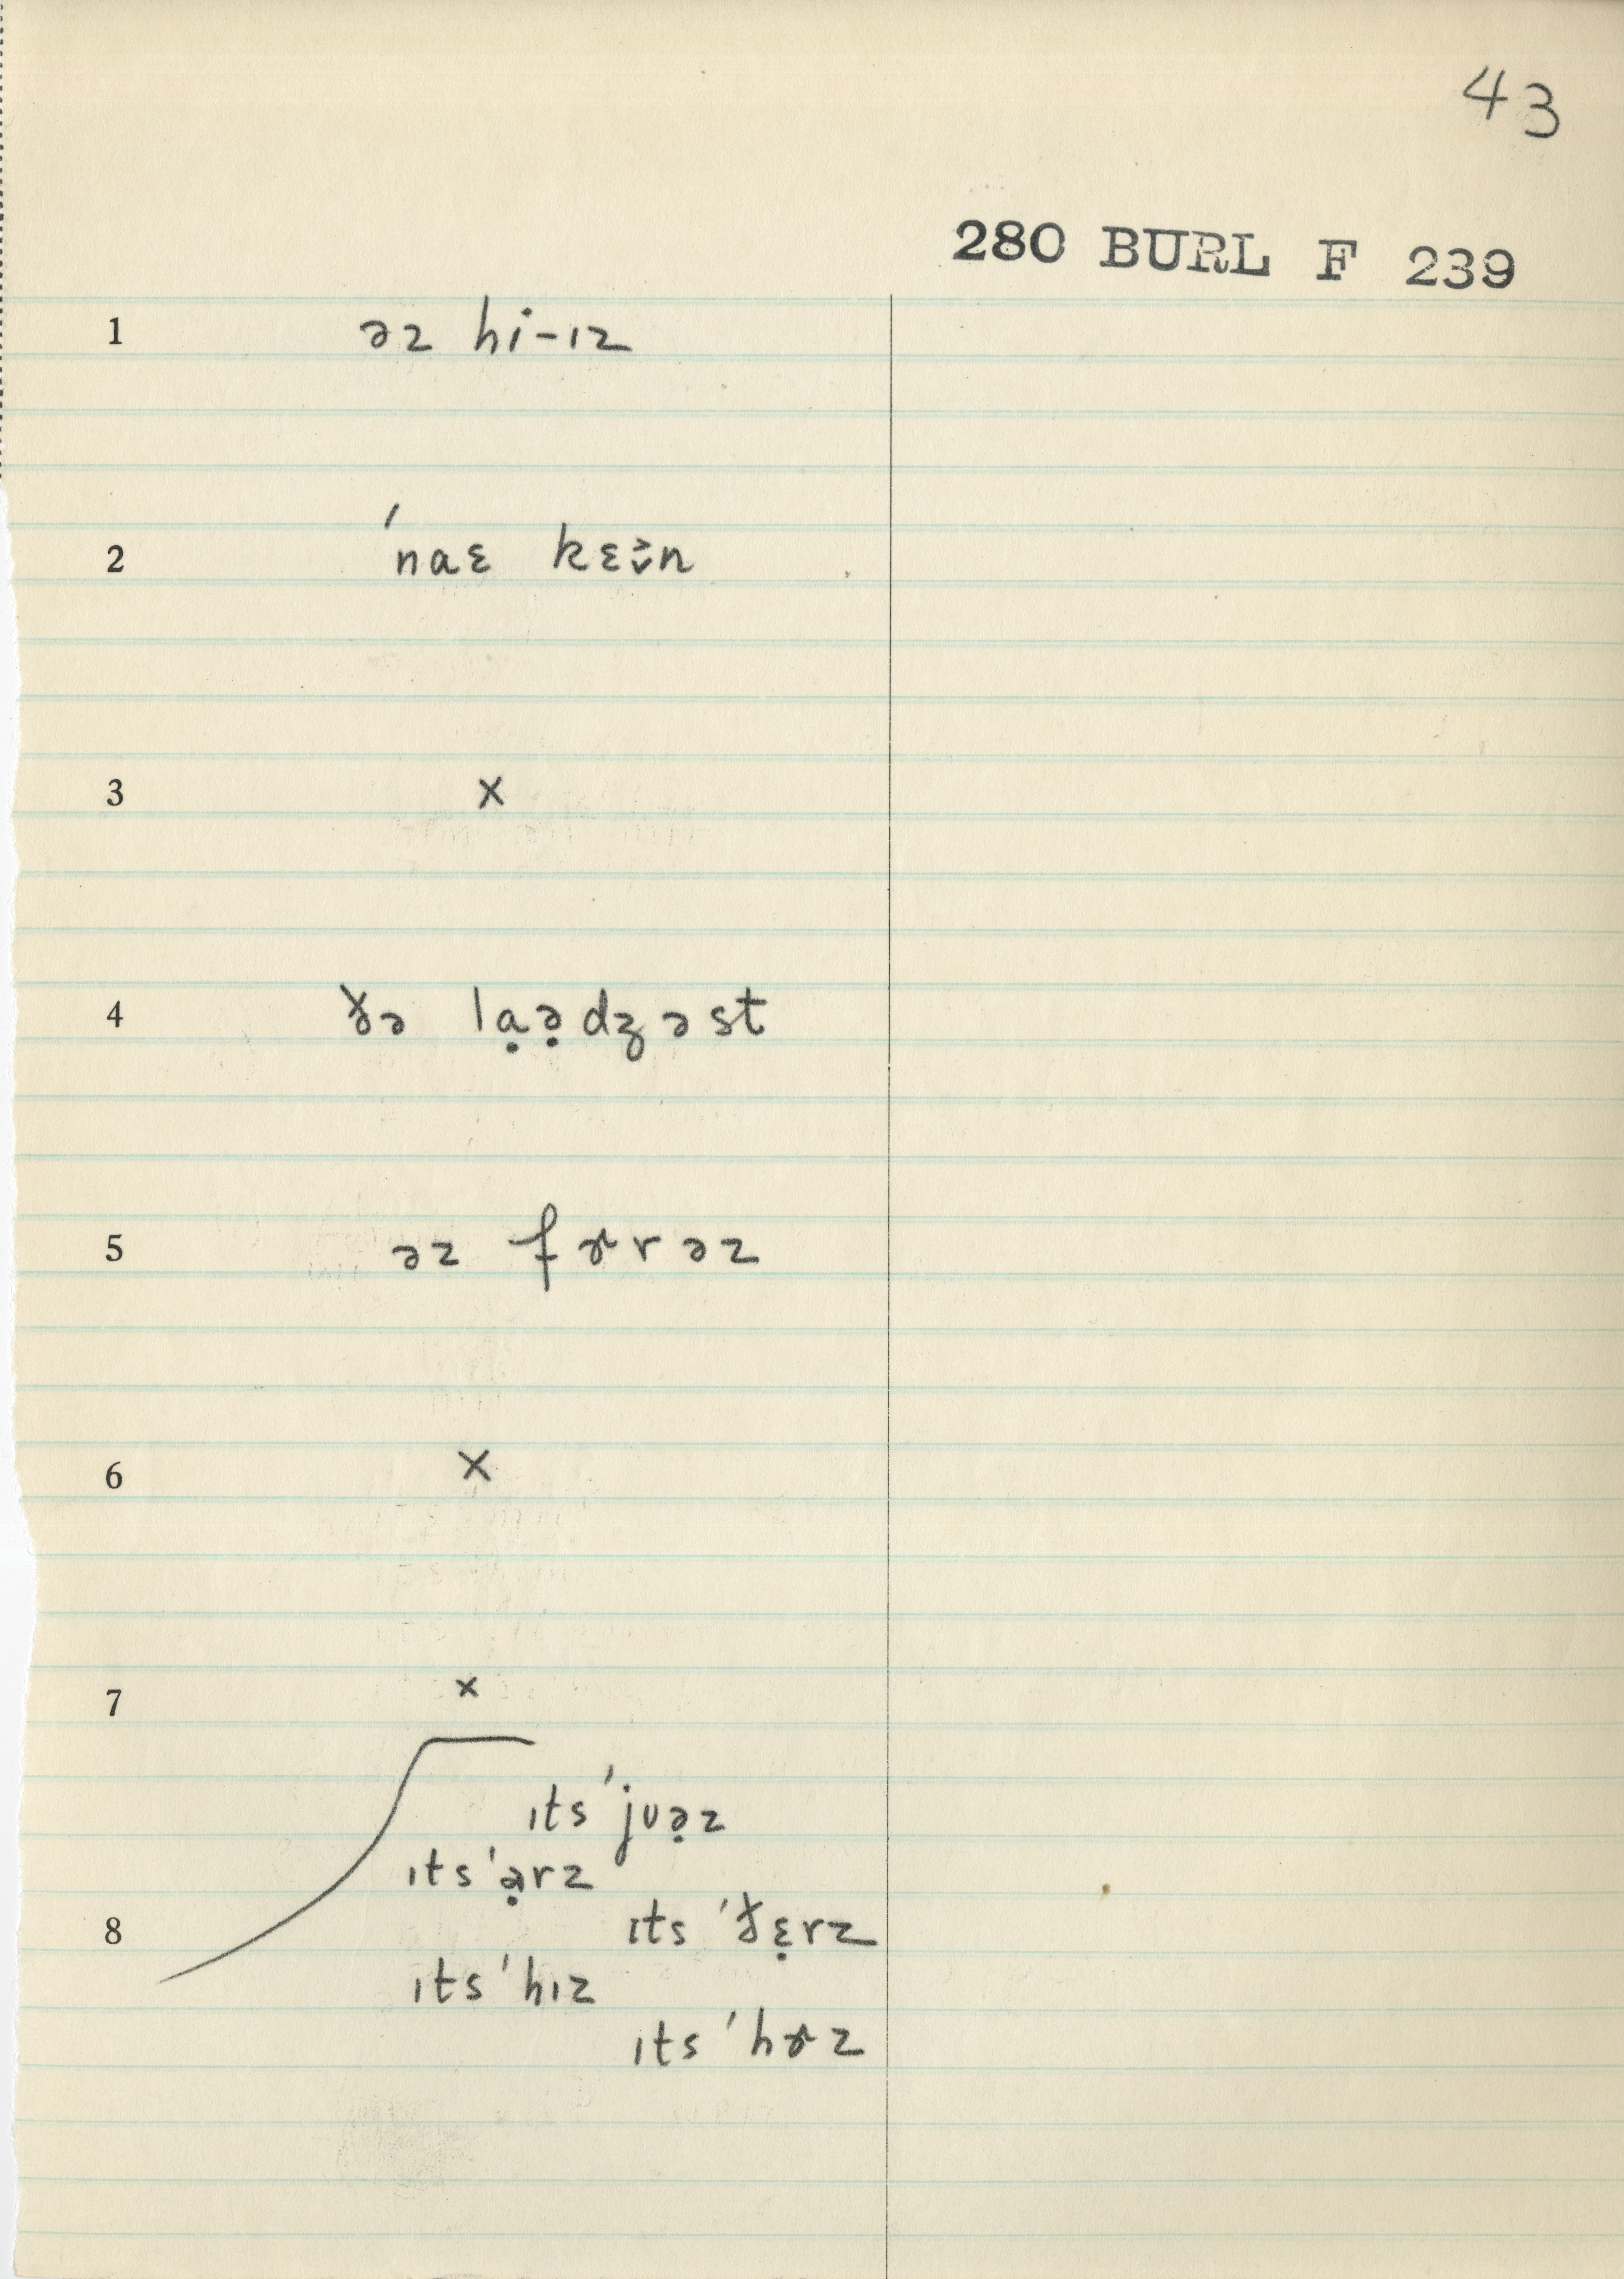 43
280 BURL F 239
1 əz hi-ɪz
2 ˈnaɛ kɛə̬̆n
3 x
4 ðə lạə̣dʒəst
5 əz fɚrəz
6 x
7 x
ɪts ˈjuə̣z
ɪts ˈạrz
8 ɪts ˈðɛ̣rz
ɪts ˈhɪz
ɪts ˈhɚz